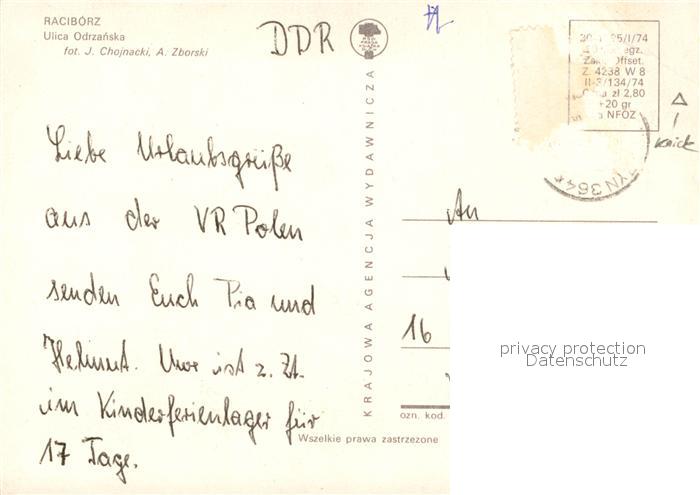 RACIBÓRZ
Ulica Odrzańska
fot. J. Chojnacki, A. Zborski
DDR
Liebe Urlaubsgrüße
aus der VR Polen
senden Euch Pia und
Helmut. Uwe ist z. Zt.
im Kinderferienlager für
17 Tage.
KRAJOWA AGENCJA WYDAWNICZA
Zakł. Offset.
Z. 4238 W 8
II-3/134/74
zł 2,80
+20 gr
NFOZ
knick
An
16
ozn. kod.
Wszelkie prawa zastrzeżone
privacy protection
Datenschutz